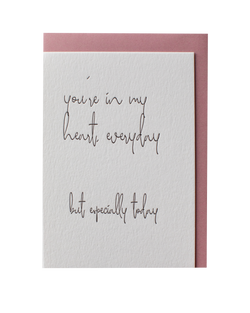 you're in my
heart, everyday
but especially today